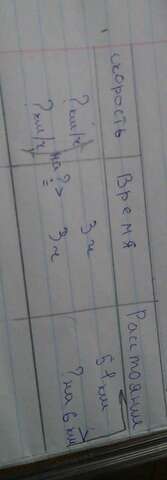 скорость Время Расстояние
? км/ч 3 ч 54 км
на ? >
? км/ч 3 ч ? на 6 км >